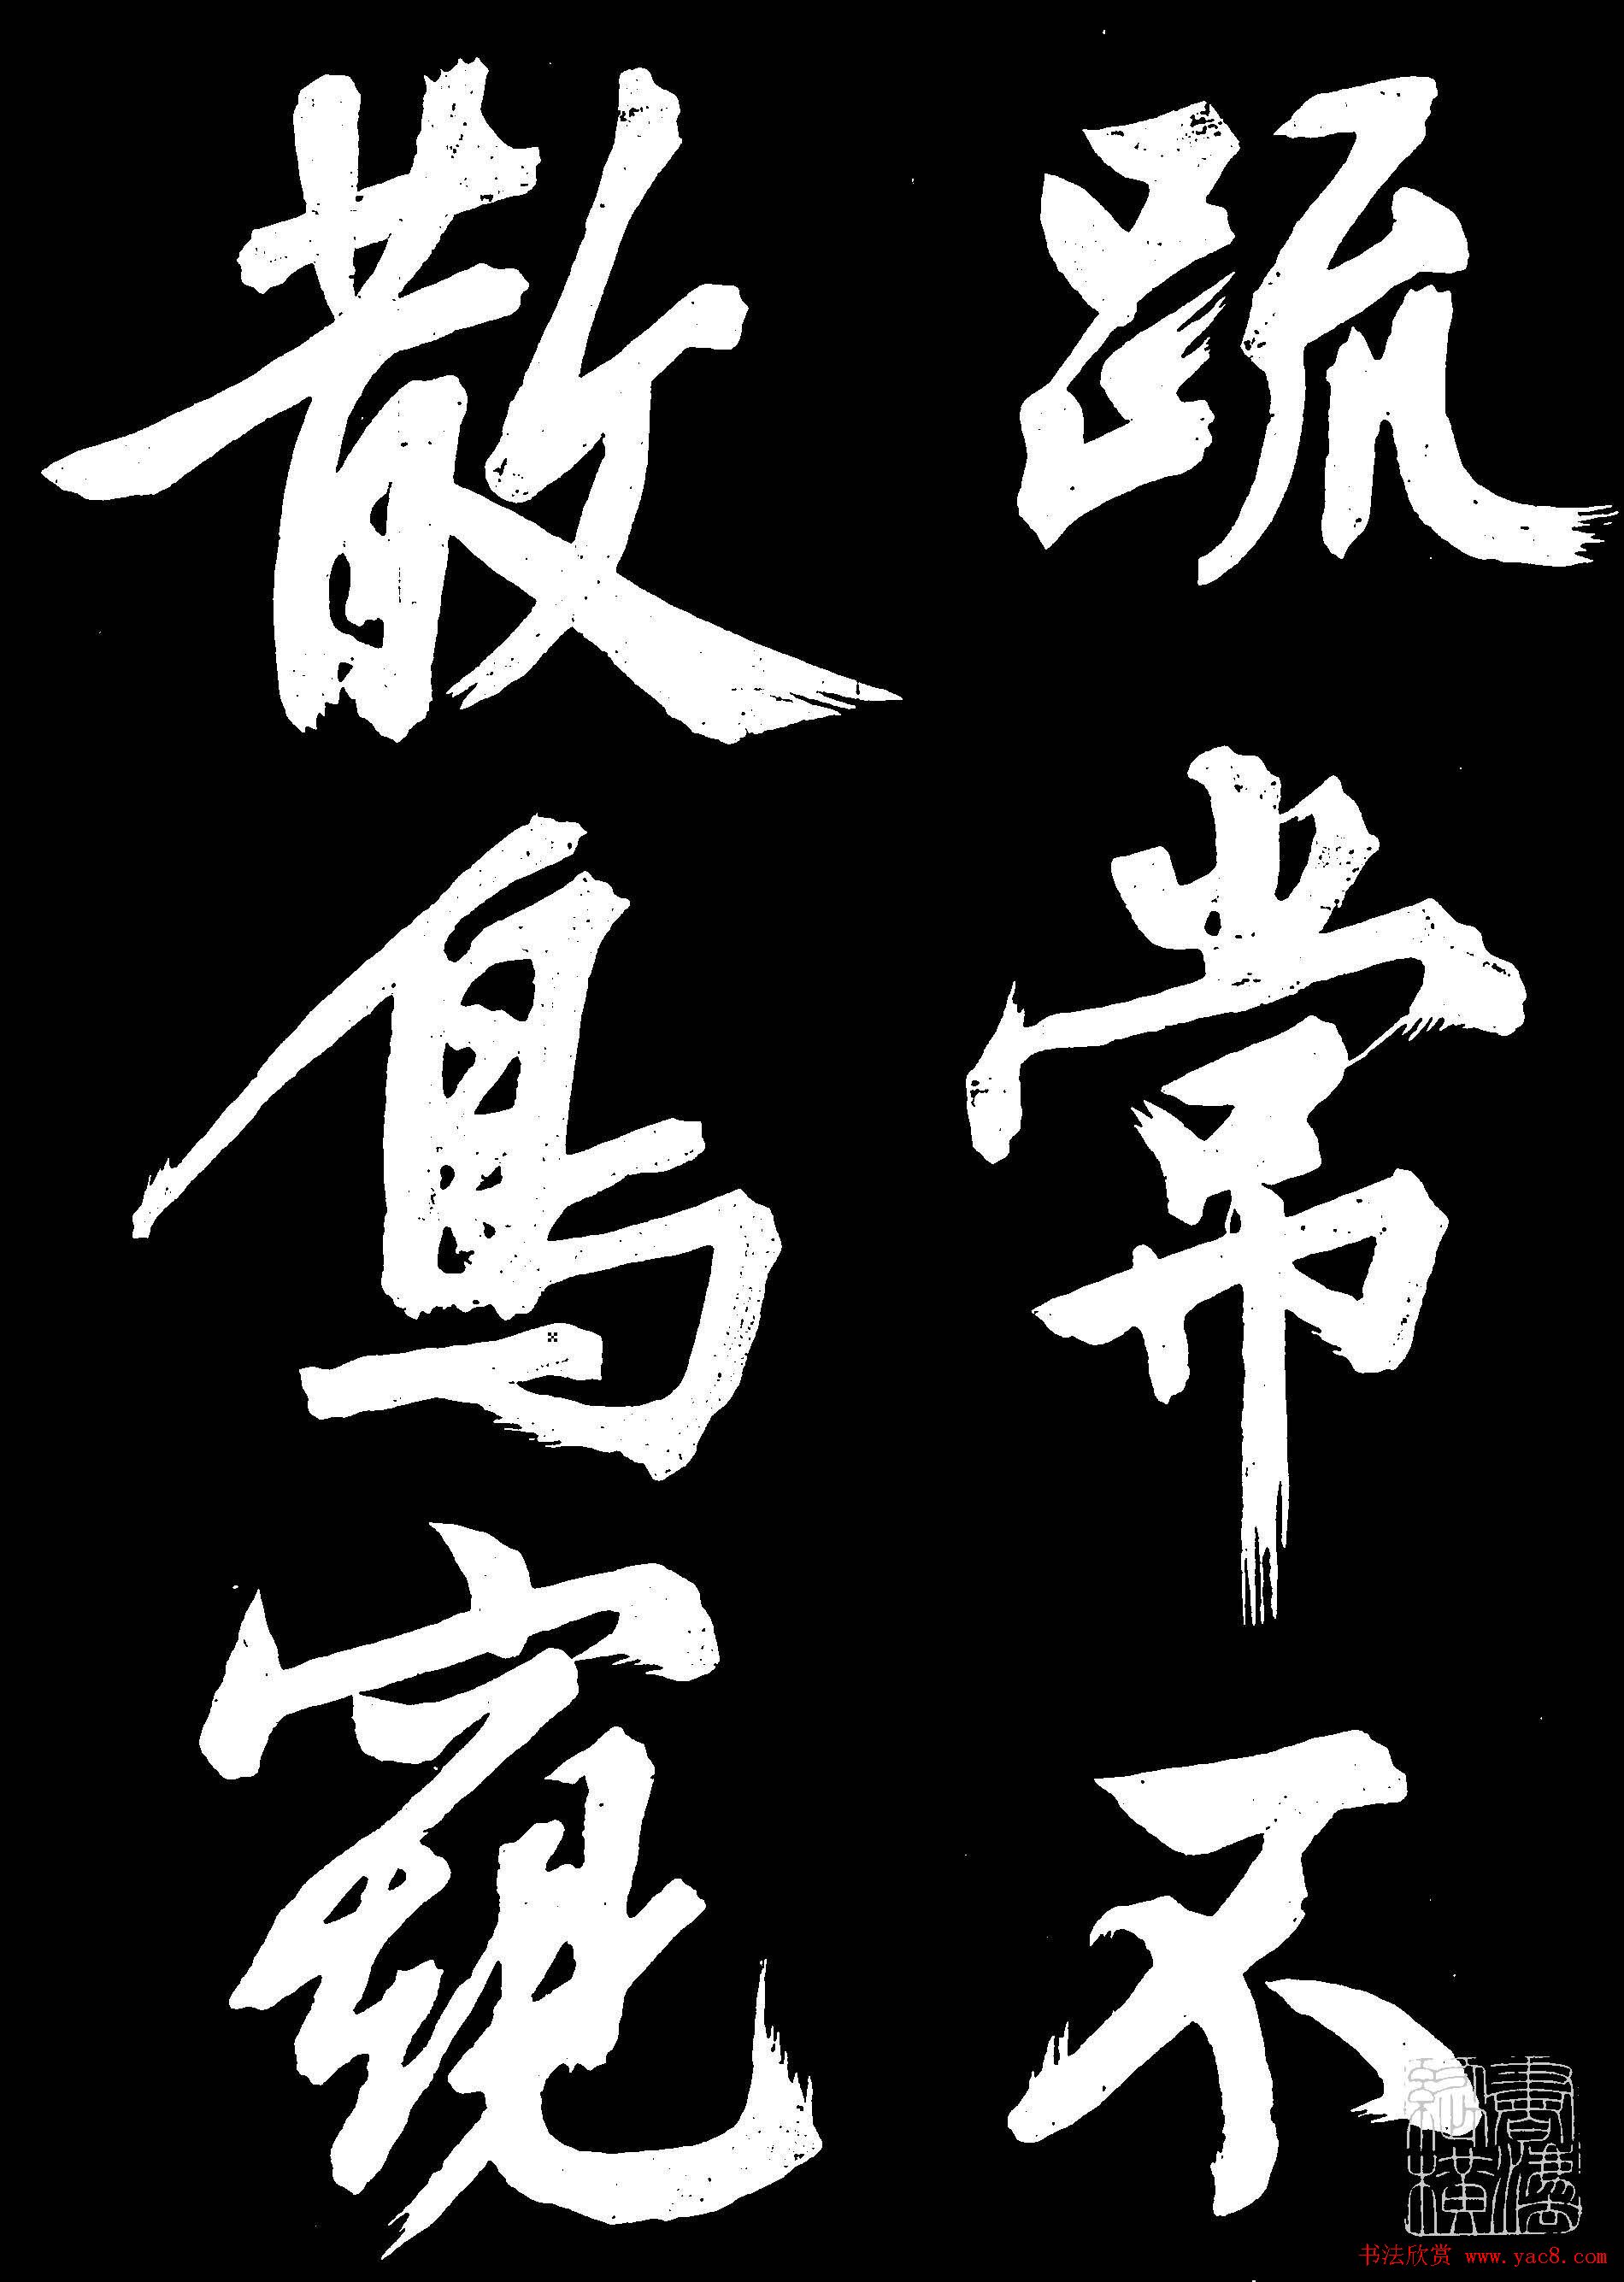 疏常不
散鳥窺
书法欣赏 www.yac8.com